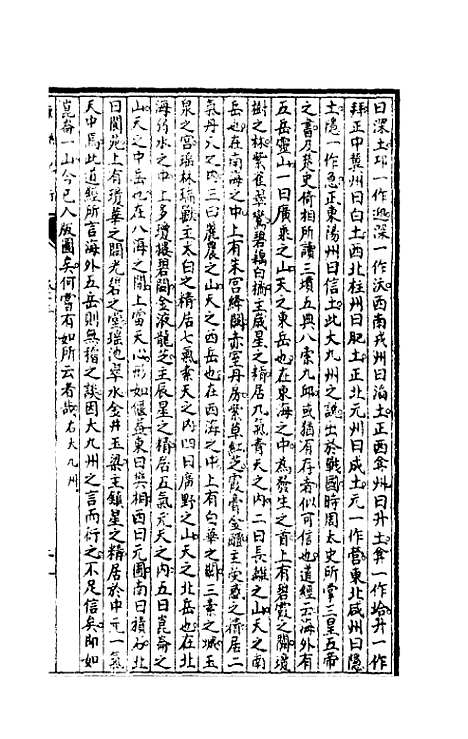 曰深土邛一作迎深一作沃西南戎州曰滔土正西弇州曰幷土弇一作拾幷一作
拜正中冀州曰白土西北柱州曰肥土正北元州曰成土元一作營東北咸州曰隱
土隱一作急正東陽州曰信土此大九州之說出於戰國時周太史所掌三皇五帝
之書及楚史倚相所讀三墳五典八索九邱或猶有存者似可信也道經云海外有
五岳靈山一曰廣乘之山天之東岳也在東海之中為發生之首上有碧霞之闕瓊
樹之林紫雀翠鸞碧藕白橘主歲星之精居九氣青天之內二曰長離之山天之南
岳也在南海之中上有朱宮絳闕赤室丹房紫草紅芝霞膏金醴主熒惑之精居三
氣丹天之內三曰麗農之山天之西岳也在西海之中上有白華之闕三素之城玉
泉之宮瑤林瑞獸主太白之精居七氣素天之內四曰廣野之山天之北岳也在北
海弱水之中上多瓊樓碧閣金液龍芝主辰星之精居五氣元天之內五曰崑崙之
山天之中岳也在八海之間上當天心形如偃蓋東曰樊桐西曰元圃南曰積石北
曰閬苑上有瓊華之闕光碧之堂瑤池翠水金井玉梁主鎮星之精居於中元一氣
天中焉此道經所言海外五岳則無稽之談因大九州之言而衍之不足信矣即如
崑崙一山今已入版圖矣何嘗有如所云者哉右大九州